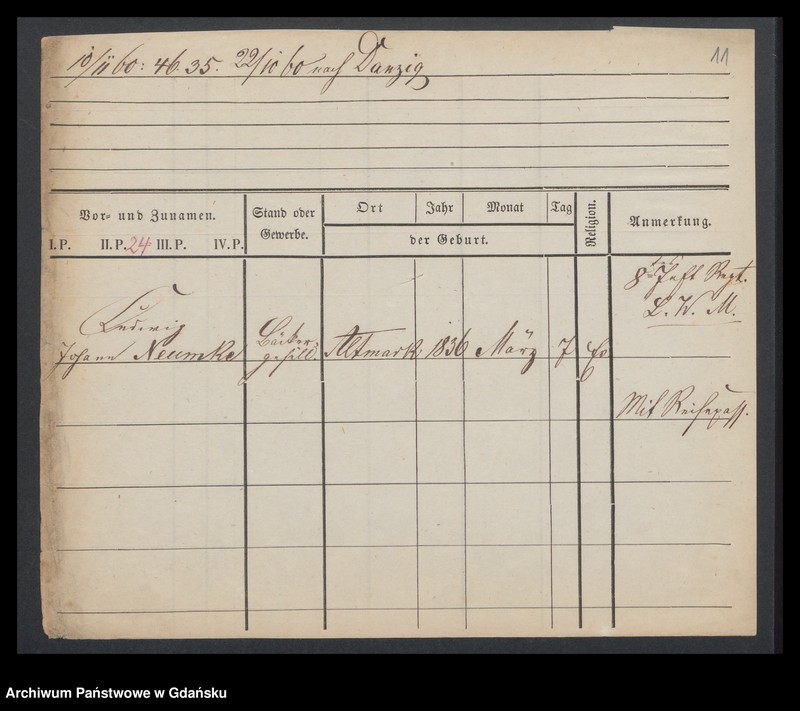 10/11 60: 46. 35. 22/10 60 nach Danzig
11
Vor= und Zunamen.
I.P. II.P. 24 III.P. IV.P.
Stand oder
Gewerbe.
Ort Jahr Monat Tag
der Geburt.
Religion.
Anmerkung.
8 Inft Regt.
L. W. M.
Ludwig
Johann Neumke
Bäcker-
gesell.
Altmark 1836 März 7 Ev
Mit Reisepass.
Archiwum Państwowe w Gdańsku